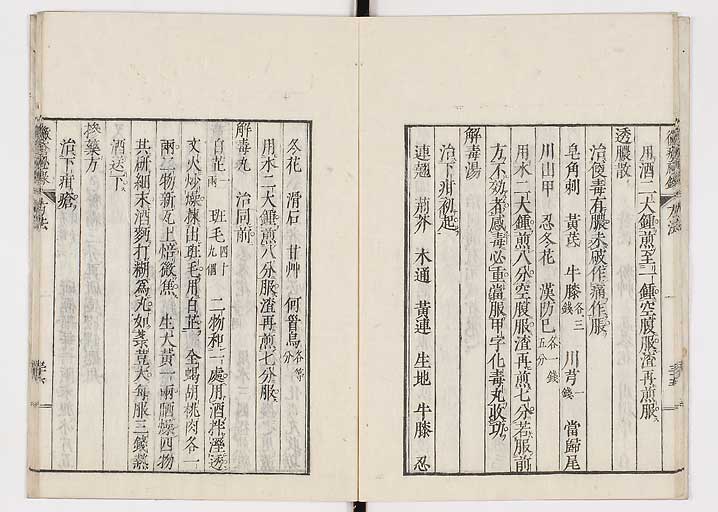 用酒二大鍾煎至一鍾空腹服渣再煎服
透膿散
治便毒有膿未破作痛作服
皂角刺 黃芪 牛膝各三錢 川芎一錢 當歸尾
川山甲 忍冬花 漢防巳各一錢五分
用水二大鍾煎八分空腹服渣再煎七分若服前
方不効者感毒必重當服甲字化毒丸收功
解毒湯
治下疳初起
連翹 荊芥 木通 黃連 生地 牛膝 忍
冬花 滑石 甘艸 何首烏各等分
用水二大鍾煎八分服渣再煎七分服
解毒丸 治同前
白芷一兩 班毛四十九個 二物和一處用酒拌溼透
文火炒燥揀出班毛用白芷 全蝎胡桃肉各一
兩二物新瓦上焙微焦 生大黃一兩晒燥四物
共研細末酒麪打糊為丸如菉荳大每服三錢熱
酒送下
換藥方
治下疳瘡